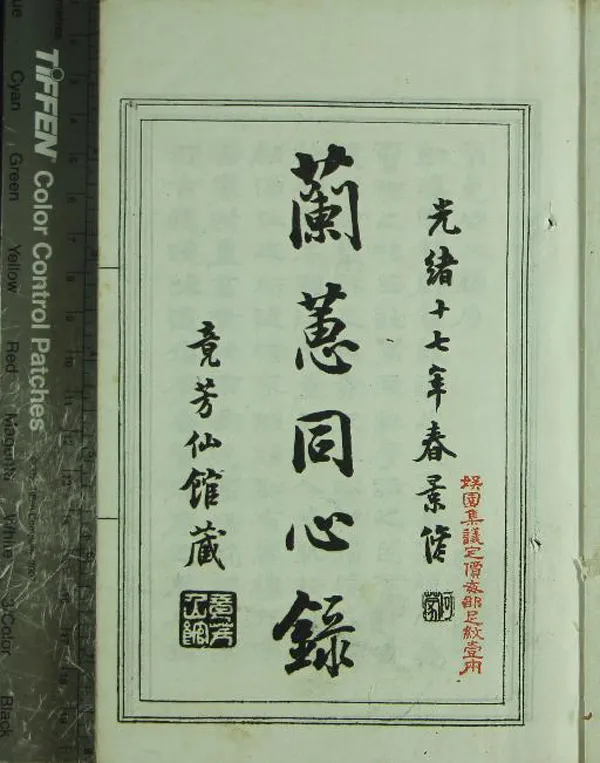 光緒十七年春景脩
娱園集議定價每部足紋壹兩
蘭蕙同心錄
竟芳仙館藏
竟芳仙館
TIFFEN Color Control Patches
Cyan Green Yellow Red Magenta White 3/Color Black